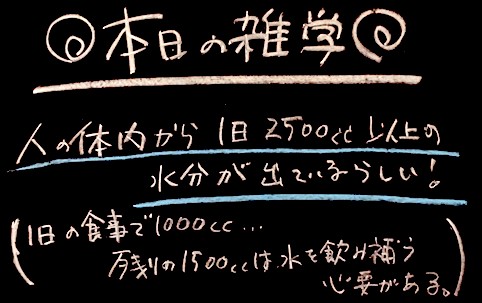 本日の雑学
人の体内から1日2500cc以上の
水分が出ているらしい!
(1日の食事で1000cc...
残りの1500ccは水を飲み補う
必要がある。)